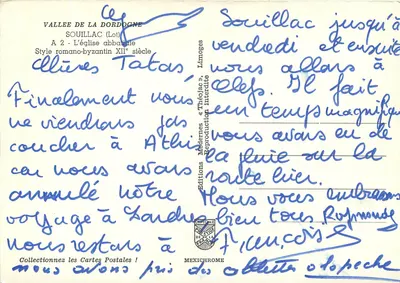 VALLEE DE LA DORDOGNE
SOUILLAC (Lot)
A 2 - L'église abbatiale
Style romano-byzantin XIIe siècle
Ce
Chères Tatas,
Finalement nous
ne viendrons pas
coucher à Athis
car nous avons
annulé nôtre
voyage à Londres
nous restons à
Souillac jusqu'à
vendredi et ensuite
nous allons à
Il fait
un temps magnifique
nous avons eu de
la pluie sur la
route hier.
Nous vous embrassons
bien tous Raymonde
François
nous avons pris des
Editions Modernes « Théojac », Limoges
Reproduction interdite
Collectionnez les Cartes Postales !
MEXICHROME